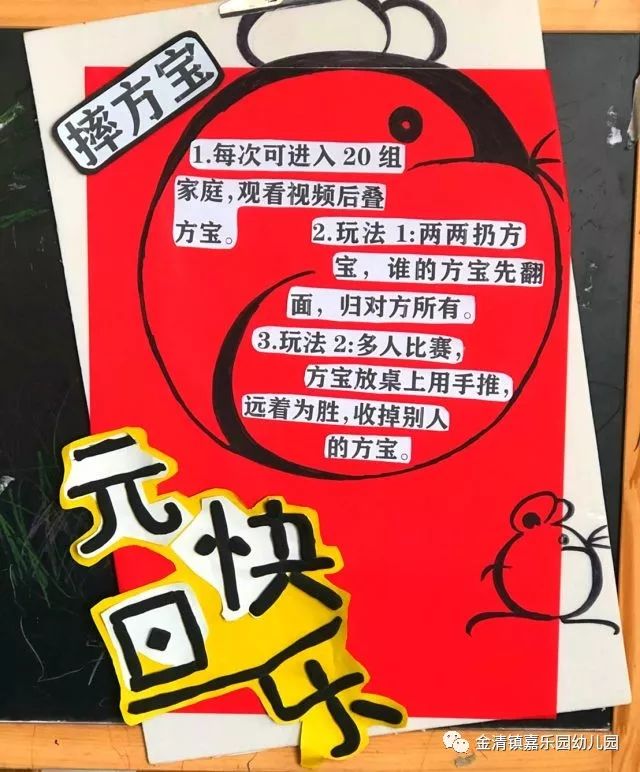 摔方宝
1.每次可进入 20 组
家庭,观看视频后叠
方宝。
2.玩法 1:两两扔方
宝，谁的方宝先翻
面，归对方所有。
3.玩法 2:多人比赛,
方宝放桌上用手推,
远着为胜,收掉别人
的方宝。
元旦
快乐
金清镇嘉乐园幼儿园